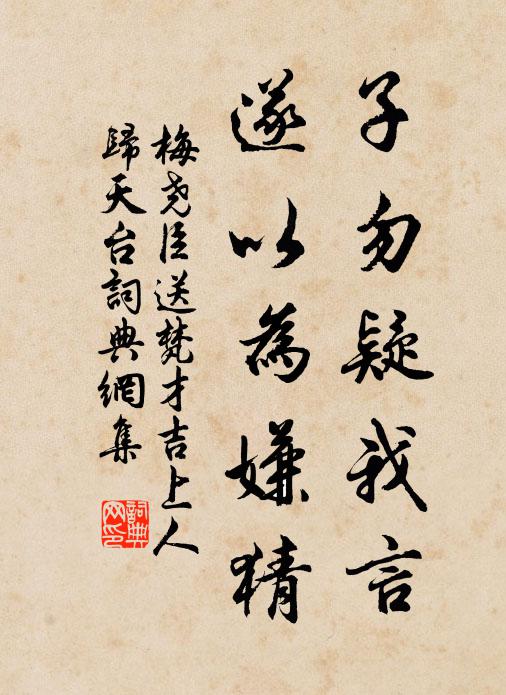 子勿疑我言
遂以為嫌猜
梅尧臣送梵才吉上人
歸天台詞典網集
詞典网印